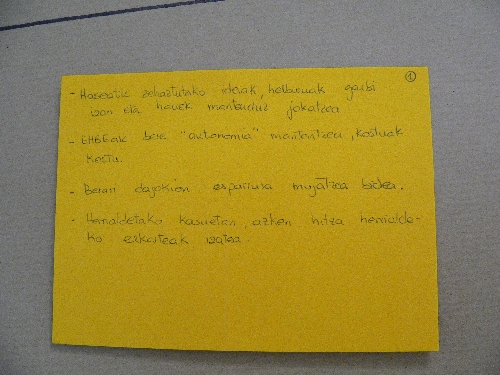 ①
- Hasieratik zehaztutako ideiak, helburuak garbi
izan eta hauek mantenduz jokatzea
- EHBEak bere "autonomia" mantentzea, kostuak
kostu.
- Berari dagokion esparrura mugatzea bidea.
- Herrialdetako kasuetan, azken hitza herrialde-
ko erkarteak izatea.